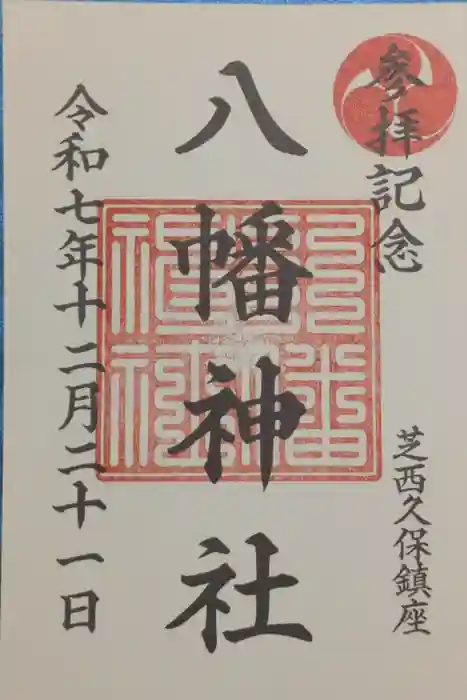 參拝記念
芝西久保鎮座
八幡神社
令和七年十二月二十一日